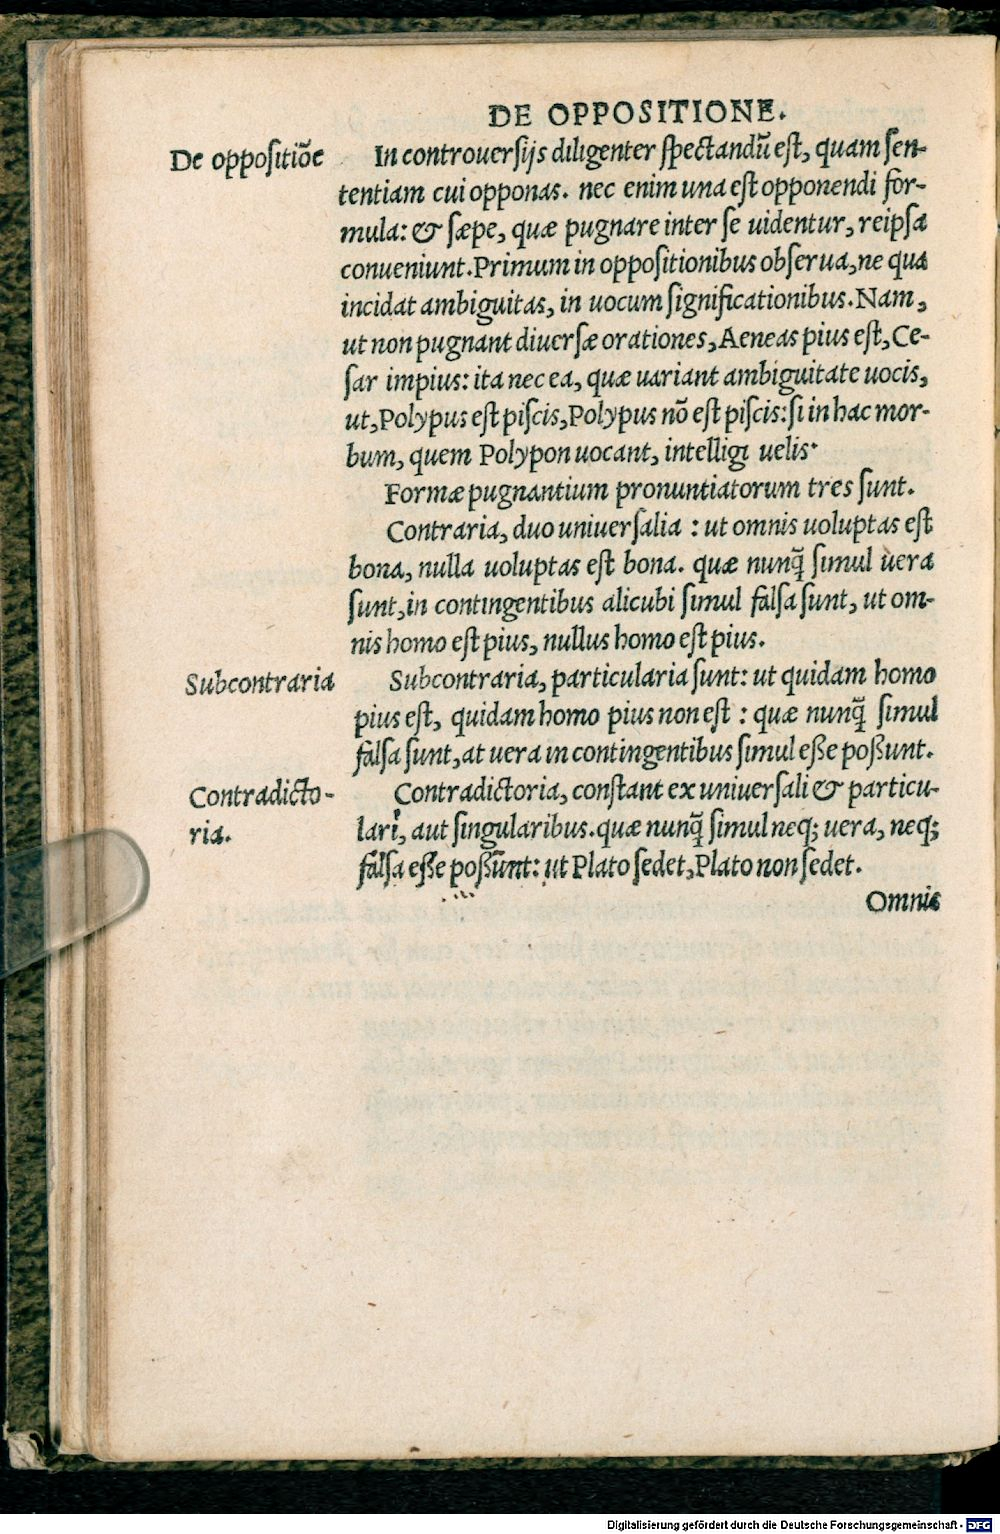 DE OPPOSITIONE.
De oppositiõe
In controuersijs diligenter spectandũ est, quam sen-
tentiam cui opponas. nec enim una est opponendi for-
mula: & sæpe, quæ pugnare inter se uidentur, reipsa
conueniunt. Primum in oppositionibus obserua, ne qua
incidat ambiguitas, in uocum significationibus. Nam,
ut non pugnant diuersæ orationes, Aeneas pius est, Ce-
sar impius: ita nec ea, quæ uariant ambiguitate uocis,
ut, Polypus est piscis, Polypus nõ est piscis: si in hac mor-
bum, quem Polypon uocant, intelligi uelis.
Formæ pugnantium pronuntiatorum tres sunt.
Contraria, duo uniuersalia : ut omnis uoluptas est
bona, nulla uoluptas est bona. quæ nunq̃ simul uera
sunt, in contingentibus alicubi simul falsa sunt, ut om-
nis homo est pius, nullus homo est pius.
Subcontraria
Subcontraria, particularia sunt: ut quidam homo
pius est, quidam homo pius non est : quæ nunq̃ simul
falsa sunt, at uera in contingentibus simul eße poßunt.
Contradicto-
ria.
Contradictoria, constant ex uniuersali & particu-
lari, aut singularibus. quæ nunq̃ simul neq; uera, neq;
falsa eße poßunt: ut Plato sedet, Plato non sedet.
Omnis
Digitalisierung gefördert durch die Deutsche Forschungsgemeinschaft - DFG